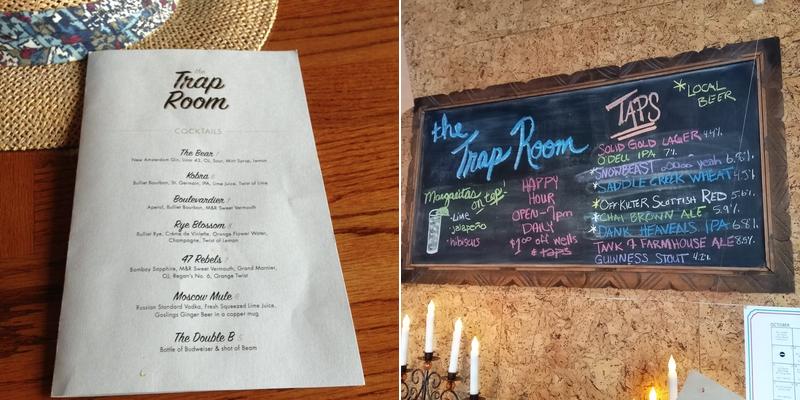 the
Trap
Room
COCKTAILS
The Bear 7
New Amsterdam Gin, Licor 43, OJ, Sour, Mint Syrup, Lemon
Kobra
Bulliet Bourbon, St. Germain, IPA, Lime Juice, Twist of Lime
Boulevardier
Aperol, Bulliet Bourbon, M&R Sweet Vermouth
Rye Blossom
Bulliet Rye, Crème de Violette, Orange Flower Water,
Champagne, Twist of Lemon
47 Rebels
Bombay Sapphire, M&R Sweet Vermouth, Grand Marnier,
OJ, Regan's No. 6, Orange Twist
Moscow Mule
Russian Standard Vodka, Fresh Squeezed Lime Juice,
Goslings Ginger Beer in a copper mug
The Double B 5
Bottle of Budweiser & shot of Beam
the
Trap Room
Margaritas on tap!
-Lime
-jalapeño
-hibiscus
HAPPY
HOUR
OPEN-7pm
DAILY
$1.00 off wells
& taps
TAPS
*LOCAL
BEER
SOLID GOLD LAGER 4.4%
ODELL IPA 7%
*SNOWBEAST yeah 6.8%
*SADDLE CREEK WHEAT 4.5%
*OFF KILTER SCOTTISH RED 5.6%
*CHAI BROWN ALE 5.9%
*DANK HEAVENS IPA 6.8%
TANK 7 FARMHOUSE ALE 8.5%
GUINNESS STOUT 4.2%
OCTOBER